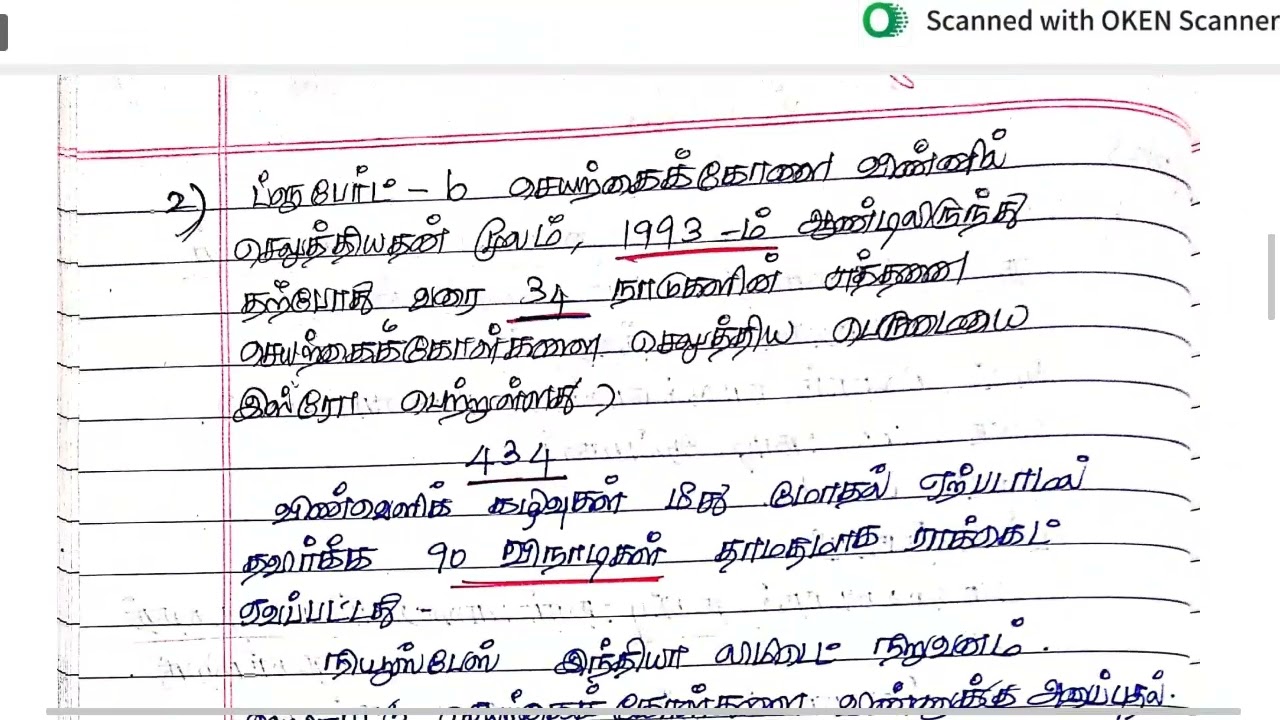 Scanned with OKEN Scanner
2) ப்ளூபேர்ட் - 6 செயற்கைக்கோளை விண்ணில்
செலுத்தியதன் மூலம், 1993 -ம் ஆண்டிலிருந்து
தற்போது வரை 34 நாடுகளின் எத்தனை
செயற்கைக்கோள்களை செலுத்திய பெருமையை
இஸ்ரோ பெற்றுள்ளது ?
434
விண்வெளிக் கழிவுகள் மீது மோதல் ஏற்படாமல்
தவிர்க்க 90 விநாடிகள் தாமதமாக ராக்கெட்
ஏவப்பட்டது -
நியூஸ்பேஸ் இந்தியா லிமிடெட் நிறுவனம் .
விண்ணுக்கு அனுப்புதல்.